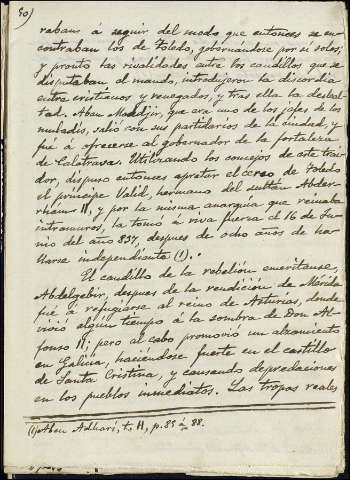 50)
raban á seguir del modo que entonces se en-
contraban los de Toledo, gobernándose por sí solos;
y pronto las rivalidades entre los caudillos que se
disputaban el mando, introdujeron la discordia
entre cristianos y renegados, y tras ella la desleal-
tad. Aben Mohadjir, que era uno de los jefes de los
muladís, salió con sus partidarios de la ciudad y
fué á ofrecerse al gobernador de la fortaleza
de Calatrava. Utilizando los consejos de este trai-
dor, dispuso entonces apretar el cerco de Toledo
el príncipe Valid, hermano del sultán Abder-
rhaman II, y por la misma anarquía que reinaba
intramuros, la tomó á viva fuerza el 16 de Ju-
nio del año 837, despues de ocho años de ha-
llarse independiente (1).
El caudillo de la rebelión emeritense,
Abdelgebir, despues de la rendición de Mérida
fué á refugiarse al reino de Asturias, donde
vivió algún tiempo á la sombra de Don Al-
fonso II; pero al cabo promovió un alzamiento
en Galicia, haciéndose fuerte en el castillo
de Santa Cristina, y causando depredaciones
en los pueblos inmediatos. Las tropas reales
(1) Aben Adhari, t. II, p. 85 á 88.